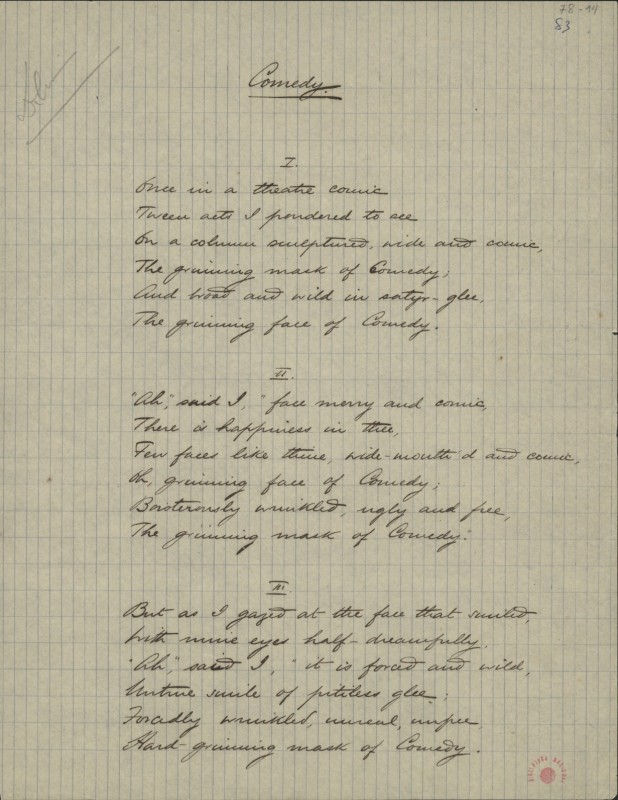 78-44
83
Comedy.
I.
Once in a theatre comic
Tween acts I pondered to see
On a column sculptured, wide and comic,
The grinning mask of Comedy;
And broad and wild in satyr-glee,
The grinning face of Comedy.
II.
"Ah", said I, "face merry and comic,
There is happiness in thee,
Few faces like thine, wide-mouth'd and comic,
Oh, grinning face of Comedy;
Boisterously wrinkled, ugly and free,
The grinning mask of Comedy."
III.
But as I gazed at the face that smiled,
With mine eyes half-dreamfully,
"Ah", said I, "it is forced and wild,
Untrue smile of pitiless glee;
Forcedly wrinkled, unreal, unfree
Hard-grinning mask of Comedy.